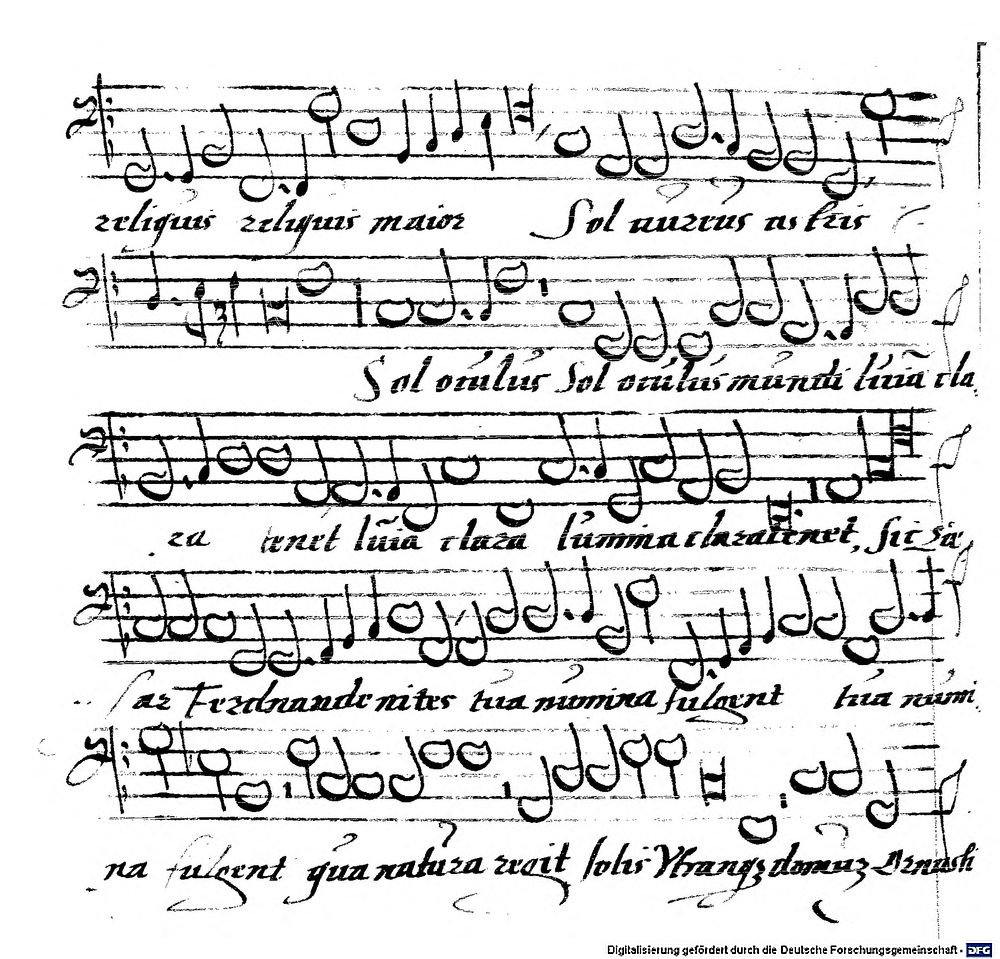 reliquis reliquis maior Sol aureus astris
Sol oculus Sol oculus mundi lūīa cla
ra tenet lūīa clara lumina clara tenet, sic
sar Ferdnande nites tua numina fulgent tua numi
na fulgent qua natura regit solis domus
Digitalisierung gefördert durch die Deutsche Forschungsgemeinschaft - DFG